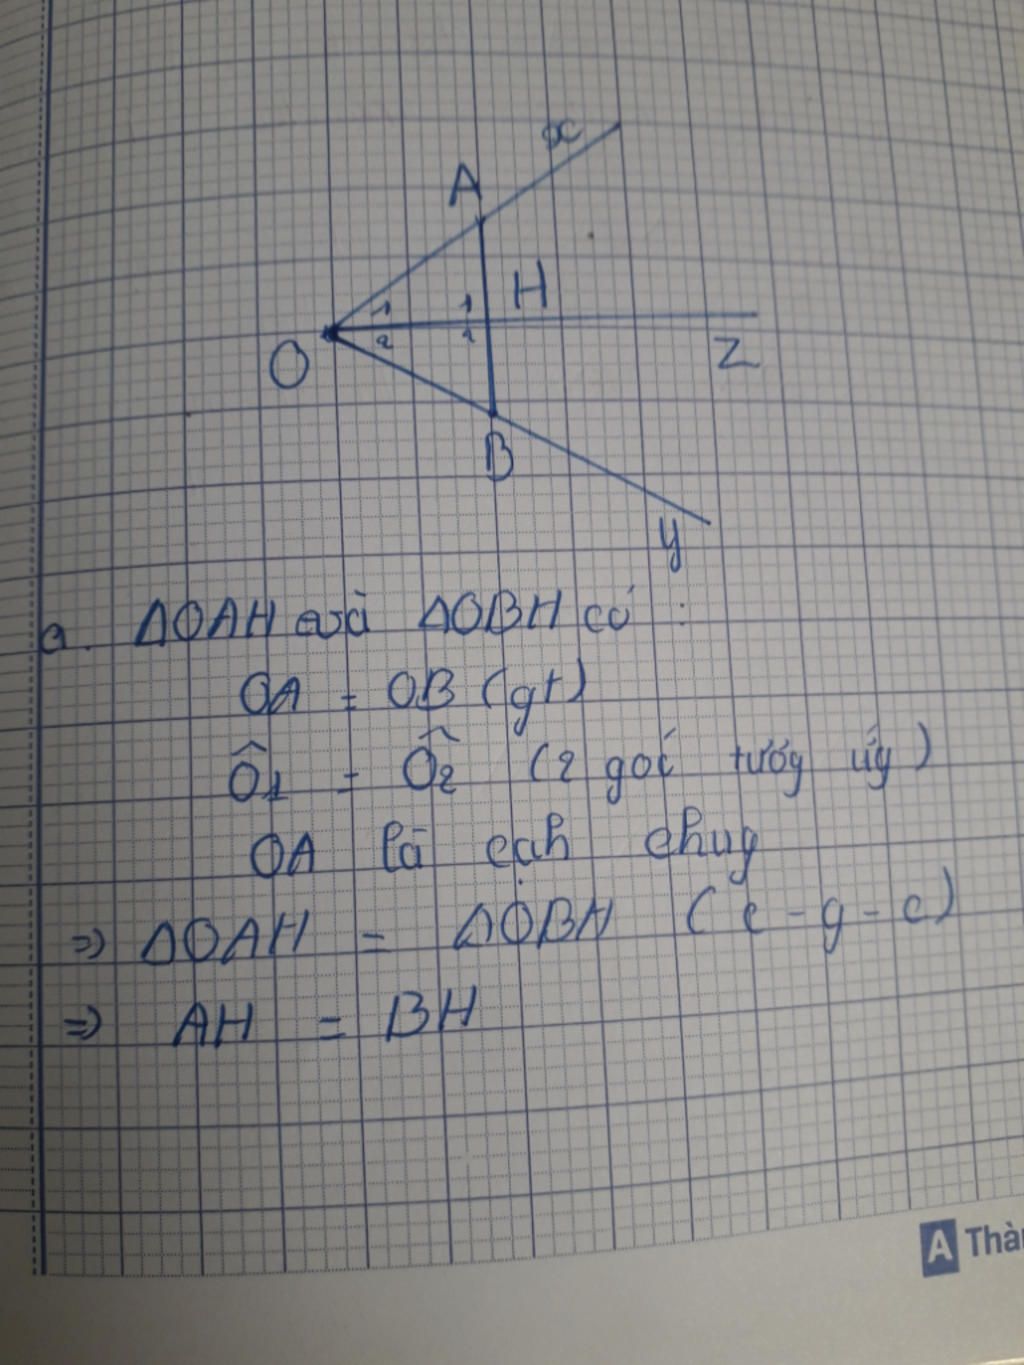 x
A
1 1 H
O 2 2 z
B
y
a. ΔOAH và ΔOBH có :
OA = OB (gt)
Ô1 = Ô2 (2 goć tướg ứg)
OA là cạh chug
=> ΔOAH = ΔOBH (c - g - c)
=> AH = BH
A Thàn